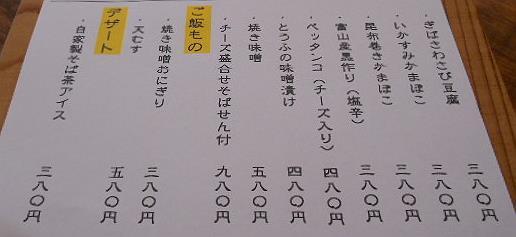 ・ぎばさわさび豆腐　三八〇円
・いかすみかまぼこ　三八〇円
・昆布巻きかまぼこ　三八〇円
・富山産黒作り（塩辛）　三八〇円
・ペッタンコ（チーズ入り）　四八〇円
・とうふの味噌漬け　四八〇円
・焼き味噌　五八〇円
・チーズ盛合せそばせん付　九八〇円
ご飯もの
・焼き味噌おにぎり　三八〇円
・天むす　五八〇円
デザート
・自家製そば茶アイス　三八〇円